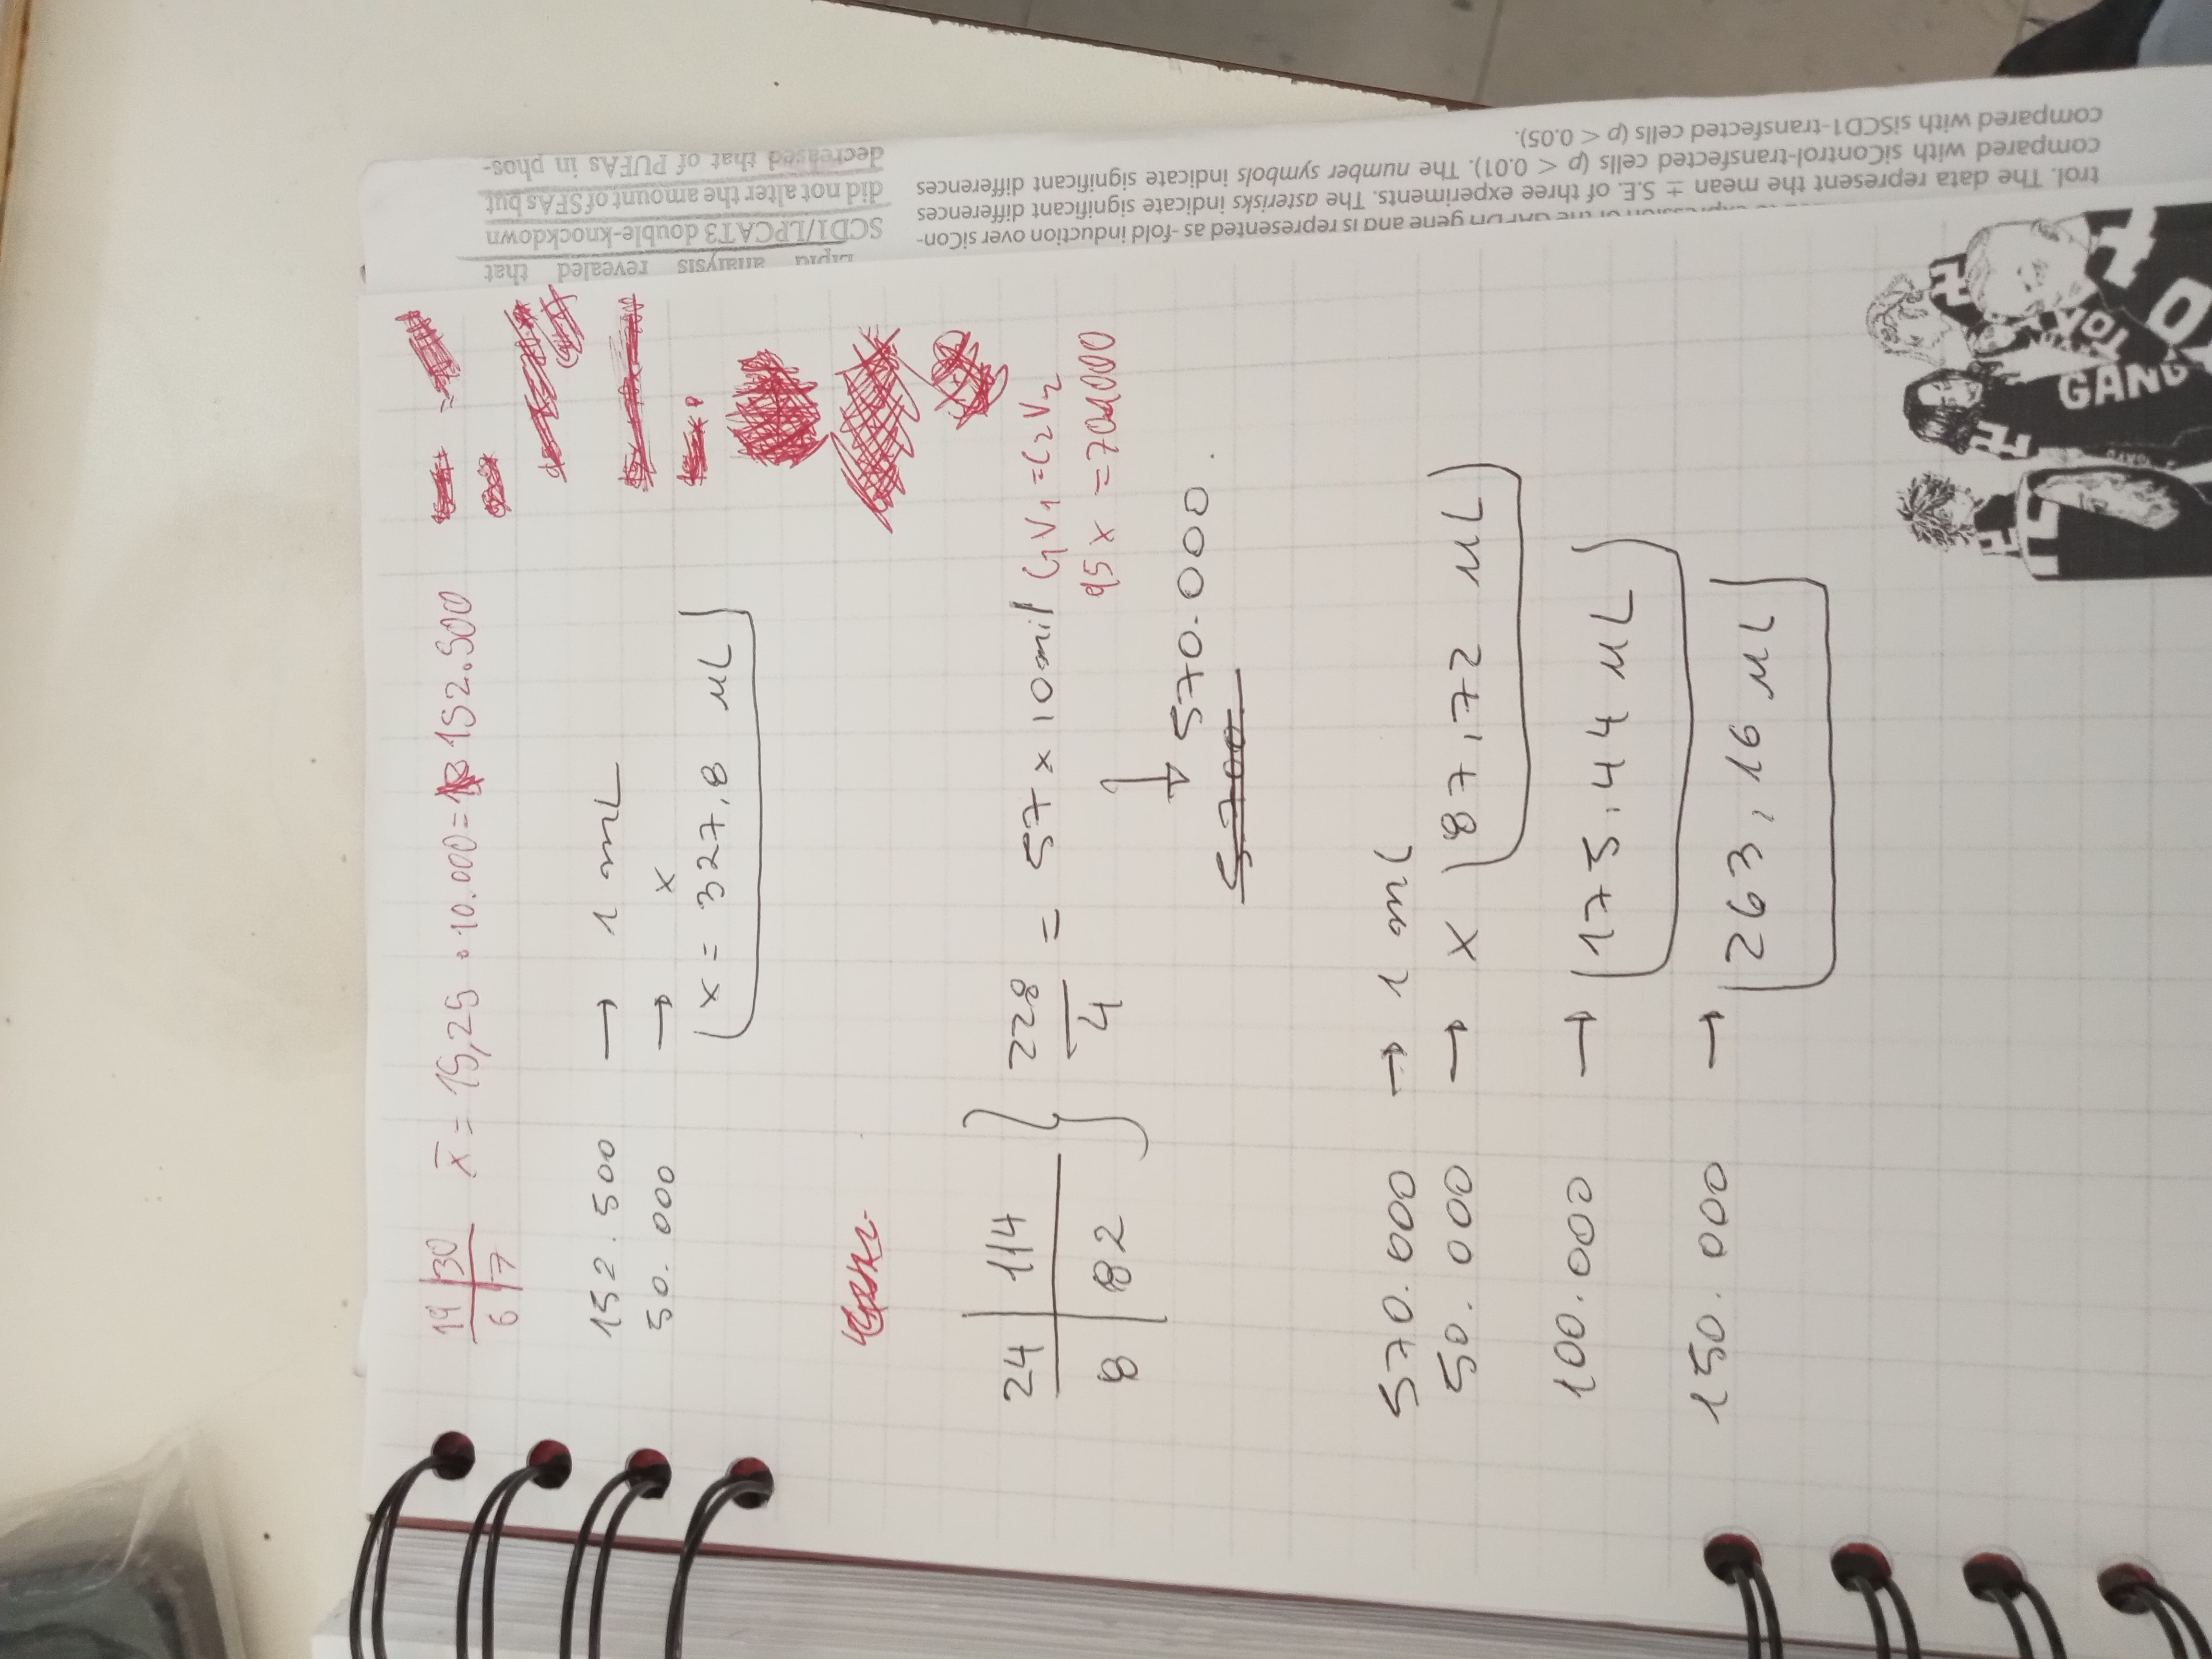 19 30 x̄ = 15,25 • 10.000 = 152.500
6 7
152.500 → 1 mL
50.000 → x
x = 327,8 µL
24 114 } 228/4 = 57 x 10 mil C1V1 = C2V2
8 82 95 x = 70.1000
↓ 570.000.
5.700
570.000 → 1 mL
50.000 → x 87,72 µL
100.000 → 175,44 µL
150.000 → 263,16 µL
analysis revealed that
SCD1/LPCAT3 double-knockdown
did not alter the amount of SFAs but
decreased that of PUFAs in phos-
gene and is represented as -fold induction over siCon-
trol. The data represent the mean ± S.E. of three experiments. The asterisks indicate significant differences
compared with siControl-transfected cells (p < 0.01). The number symbols indicate significant differences
compared with siSCD1-transfected cells (p < 0.05).
GANG